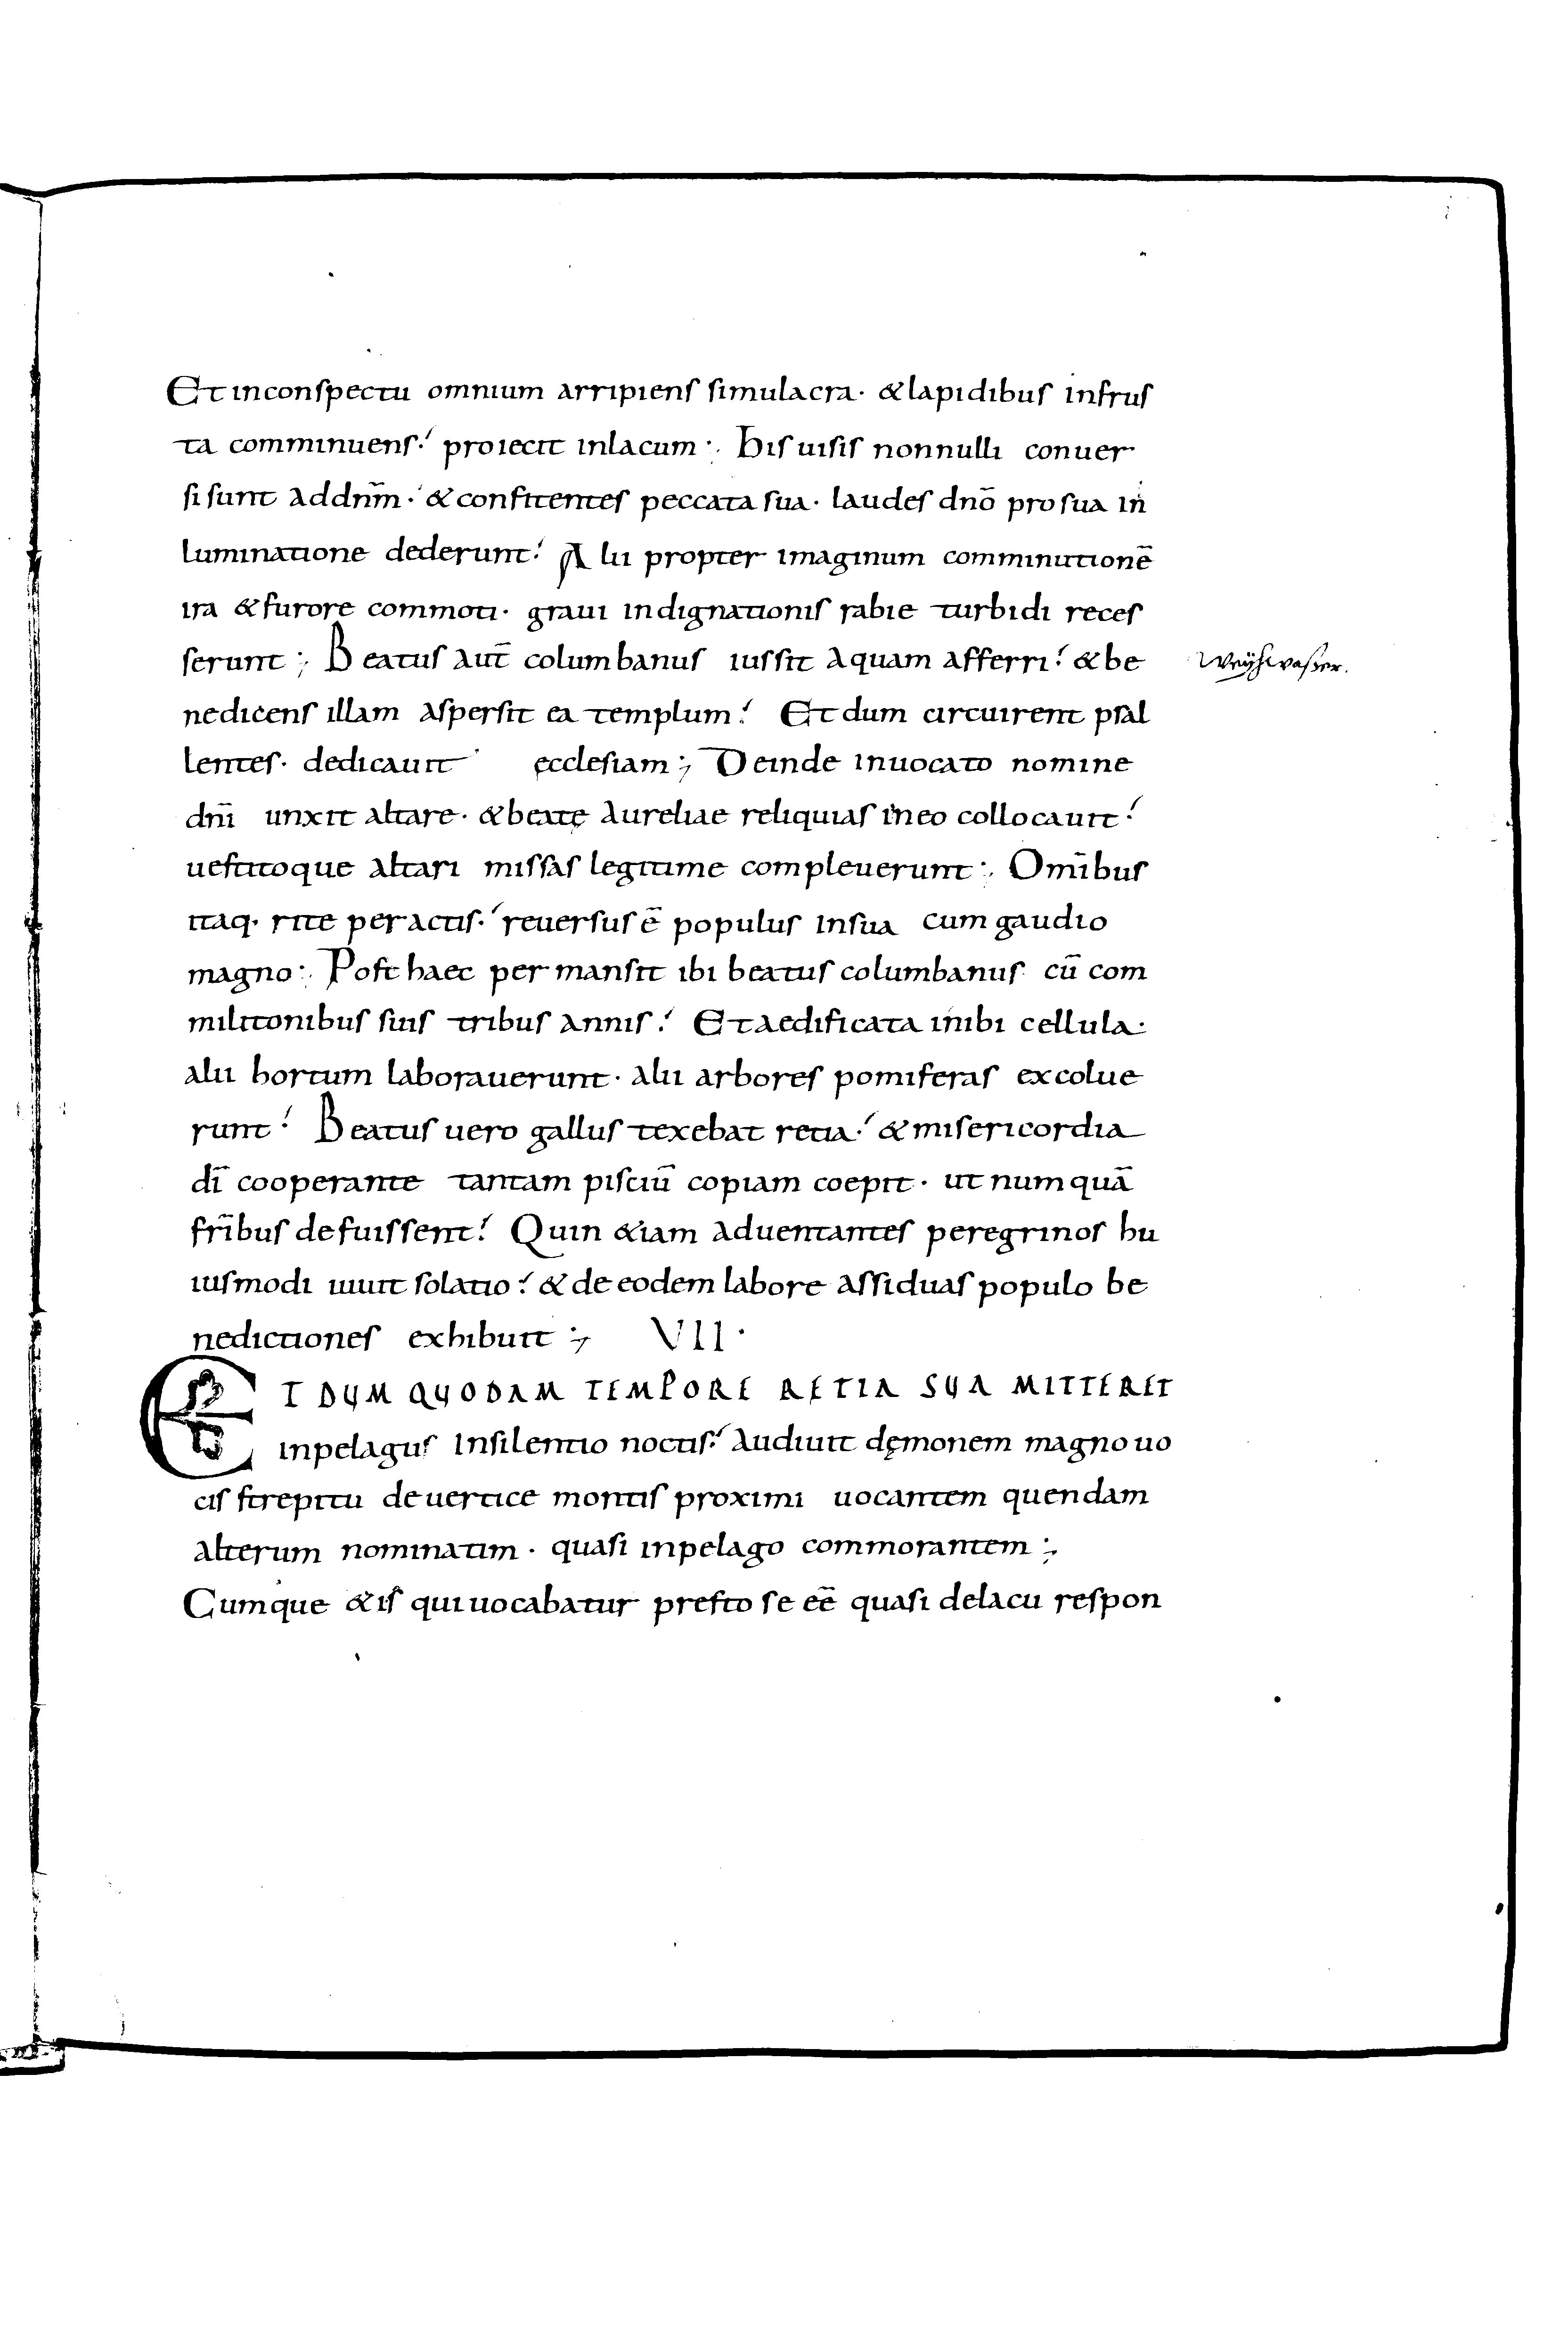 Et inconspectu omnium arripiens simulacra· & lapidibus infrus
ta comminuens·' proiecit inlacum:. His uisis nonnulli conuer
si sunt addnm̄·' & confitentes peccata sua· laudes dnō pro sua in
luminatione dederunt.' Alii propter imaginum comminutionē
ira & furore commoti· graui indignationis rabie turbidi reces
serunt:, Beatus aut̄ columbanus iussit aquam afferri.' & be
weÿhwasser.
nedicens illam aspersit ea templum.' Et dum circuirent psal
lentes· dedicauit ęcclesiam:, Deinde inuocato nomine
dnī unxit altare· & beatę Aureliae reliquias in eo collocauit.'
uestitoque altari missas legitime compleuerunt:. Omībus
itaq· rite peractis·' reuersus ē populus insua cum gaudio
magno:. Post haec permansit ibi beatus columbanus cū com
militonibus suis tribus annis.' Et aedificata inibi cellula·
alii hortum laborauerunt· alii arbores pomiferas excolue
runt.' Beatus uero gallus texebat retia·' & misericordia
dī cooperante tantam pisciū copiam coepit· ut numquā
frībus defuissent.' Quin &iam aduentantes peregrinos hu
iusmodi iuuit solatio.' & de eodem labore assiduas populo be
nedictiones exhibuit:, VII·
ET DUM QUODAM TEMPORE RETIA SUA MITTERET
inpelagus insilentio noctis·' audiuit dęmonem magno uo
cis strepitu de uertice montis proximi uocantem quendam
alterum nominatim· quasi inpelago commorantem:,
Cumque & is qui uocabatur presto se eē quasi delacu respon